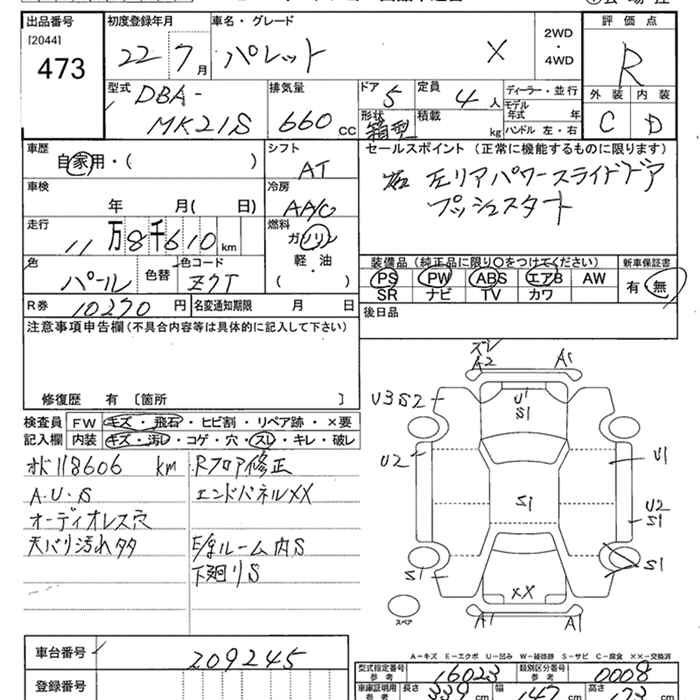 出品番号
[2044]
473
初度登録年月
22 7月
車名・グレード
パレット X
2WD
・
4WD
評価点
R
外装 内装
C D
型式
DBA-
MK21S
排気量
660 cc
ドア
5
定員
4人
形状
箱型
積載
kg
ディーラー・並行
モデル
年式 年
ハンドル 左・右
車歴
自家用・( )
シフト
AT
セールスポイント (正常に機能するものに限ります)
左リアパワースライドドア
プッシュスタート
車検
年 月( 日)
冷房
AA/C
走行
11万8千610km
燃料
ガソリン
軽・油
( )
色
パール
色替
色コード
Z7T
装備品(純正品に限り○をつけてください)
PS PW ABS エアB AW
SR ナビ TV カワ
新車保証書
有・無
R券
10270円
名変通知期限 月 日
後日品
注意事項申告欄(不具合内容等は具体的に記入して下さい)
修復歴 有 〔箇所 〕
検査員
記入欄
FW キズ・飛石・ヒビ割・リペア跡・×要
内装 キズ・汚レ・コゲ・穴・スレ・キレ・破レ
オド118606 km
A.U.S
オーディオレス穴
天バリ汚れタタ
Rフロア修正
エンドパネルXX
E/gルーム内S
下廻りS
ズレ
A2 A1
U3S2
U1
S1
U2
U1
S1
U2
S1
S1
S1
XX
A1 A1
スペア
A-キズ E-エクボ U-凹み W-補修跡 S-サビ C-腐食 ××-交換済
車台番号
209245
登録番号
型式指定番号
参考
16023
類別区分番号
参考
0008
車庫証明用
参考
長さ
339cm
幅
147cm
高さ
173cm